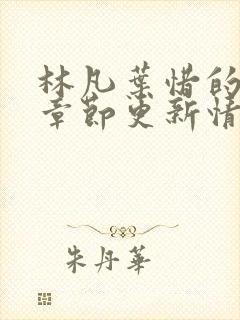 林凡葉惜的
章節更新情
朱丹華